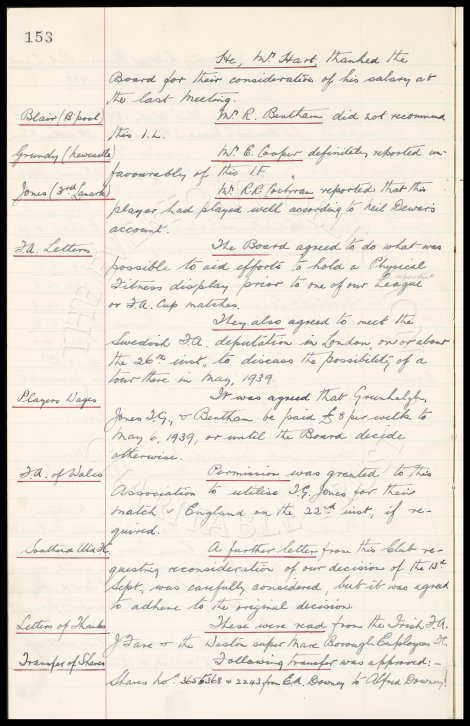 153
He, Mr Hart, thanked the
Board for their consideration of his salary at
the last Meeting.
Blair (B'pool) Mr R. Bentham did not recommend
this I.L.
Grundy (Newcastle) Mr E. Cooper definitely reported un-
favourably of this I.F.
Jones (3rd Lanark) Mr R.R. Cochran reported that this
player had played well according to Neil Dewar's
account.
F.A. Letters. The Board agreed to do what was
possible to aid efforts to hold a Physical
Fitness display prior to one of our important League
or F.A. Cup matches.
They also agreed to meet the
Swedish F.A. deputation in London, on or about
the 26th inst, to discuss the possibility of a
tour there in May, 1939.
Players Wages It was agreed that Greenhalgh,
Jones T.G., & Bentham be paid £8 per week to
May 6, 1939, or until the Board decide
otherwise.
F.A. of Wales Permission was granted to this
Association to utilise T.G. Jones for their
match v England on the 22nd inst, if re-
quired.
Southend Utd F.C. A further letter from this Club re-
questing reconsideration of our decision of the 13th
Sept, was carefully considered, but it was agreed
to adhere to the original decision.
Letters of Thanks These were read from the Irish F.A.
J Fare & the Weston super Mare Borough Employees F.C.
Transfer of Shares Following transfer was approved:-
Shares Nos. & 2243 from Ed. Downey to Alfred Downey.